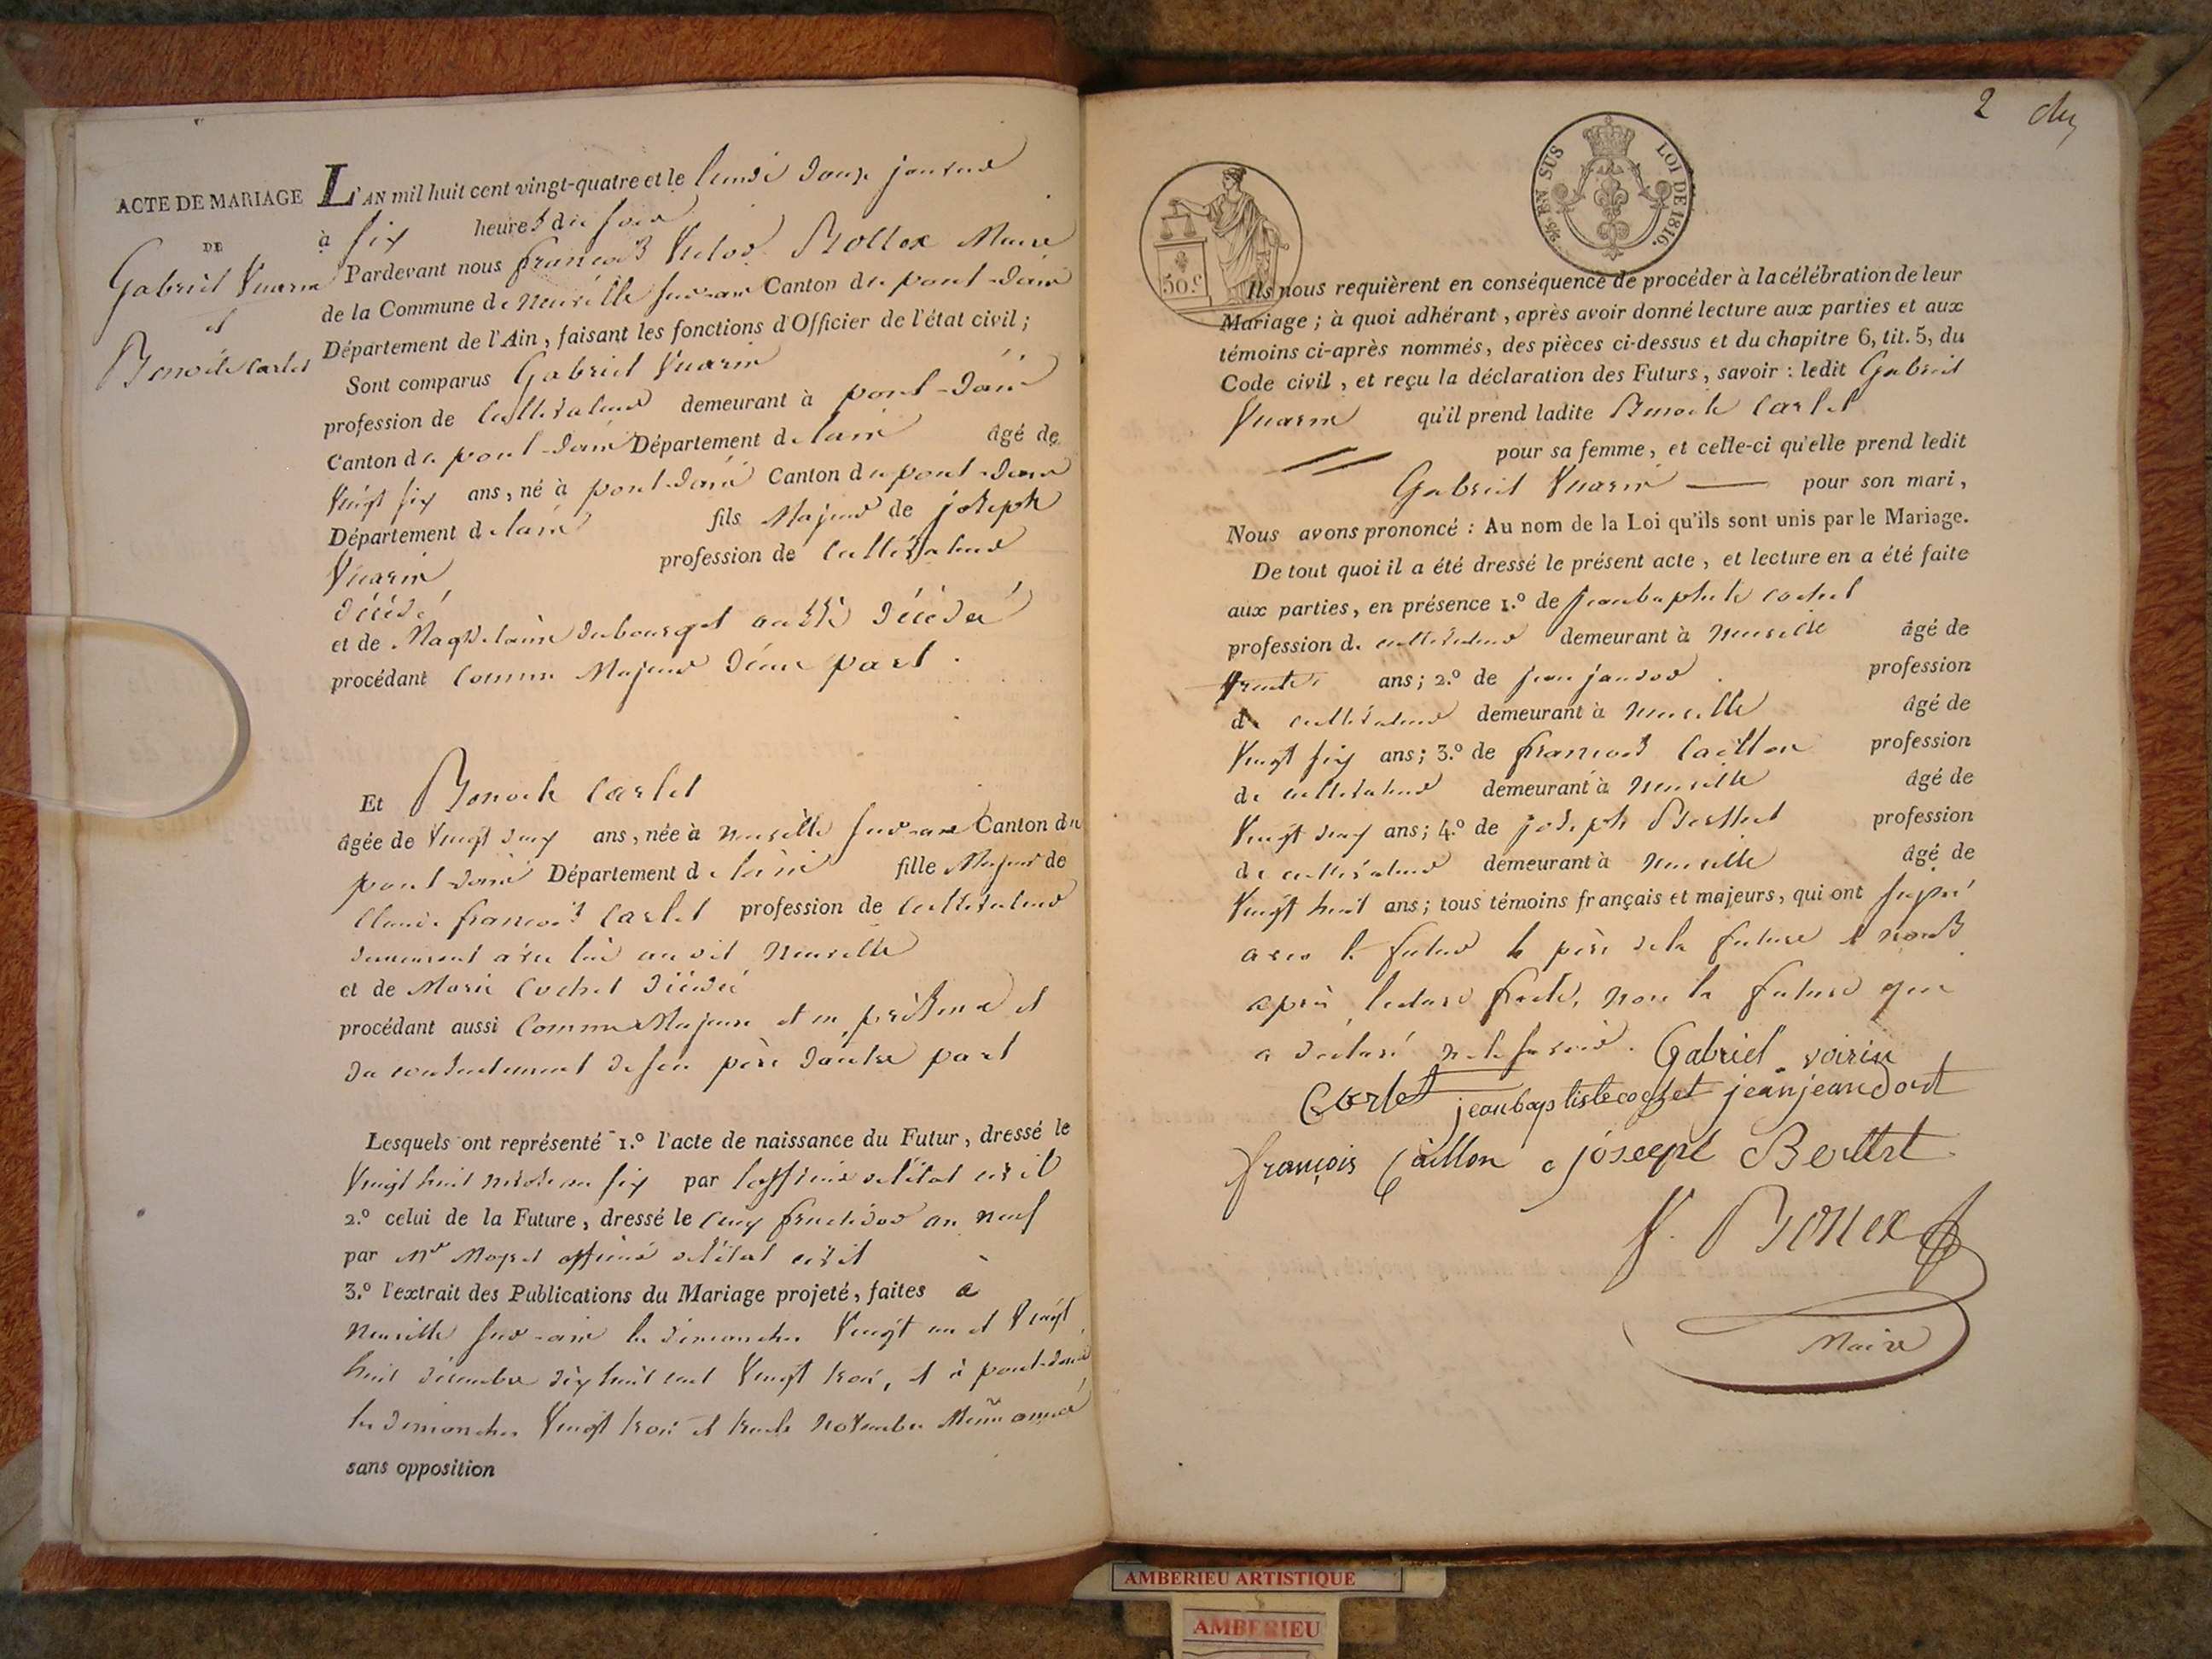 ACTE DE MARIAGE
DE
Gabriel Vuarin
et
Benoite Carlet
L'AN mil huit cent vingt-quatre et le lundi douze janvier
à six heures du soir
Pardevant nous françois Victor Maire
de la Commune de neuville sur-ain Canton du pont-dain
Département de l'Ain, faisant les fonctions d'Officier de l'état civil;
Sont comparus Gabriel Vuarin
profession de cultivateur demeurant à pont-dain
Canton de pont-dain Département de lain âgé de
Vingt six ans, né à pont-dain Canton du pont-dain
Département de lain fils Majeur de joseph
Vuarin profession de cultivateur
décédé
et de Magdelaine dubourget aussi décédée
procédant comme Majeur d'une part.
Et Benoite Carlet
âgée de Vingt deux ans, née à neuville sur-ain Canton du
pont-dain Département de lain fille Majeure de
Claude françois Carlet profession de cultivateur
demeurant avec lui au dit Neuville
et de Marie Cochet décédée
procédant aussi comme Majeure et en présence et
du consentement de son père d'autre part
Lesquels ont représenté 1.º l'acte de naissance du Futur, dressé le
Vingt huit nivose an six par l'officier de létat civil
2.º celui de la Future, dressé le cinq fructidor an neuf
par Mr officier de létat civil
3.º l'extrait des Publications du Mariage projeté, faites à
Neuville sur-ain les dimanches Vingt un et Vingt
huit décembre dix huit cent Vingt trois, et à pont-dain
les dimanches Vingt trois et trente novembre Même année
sans opposition
2
50.C
5/9.es EN SUS LOI DE 1816.
Ils nous requièrent en conséquence de procéder à la célébration de leur
Mariage; à quoi adhérant, après avoir donné lecture aux parties et aux
témoins ci-après nommés, des pièces ci-dessus et du chapitre 6, tit. 5, du
Code civil, et reçu la déclaration des Futurs, savoir: ledit Gabriel
Vuarin qu'il prend ladite Benoite Carlet
pour sa femme, et celle-ci qu'elle prend ledit
Gabriel Vuarin pour son mari,
Nous avons prononcé: Au nom de la Loi qu'ils sont unis par le Mariage.
De tout quoi il a été dressé le présent acte, et lecture en a été faite
aux parties, en présence 1.º de jean baptiste cochet
profession de cultivateur demeurant à neuville âgé de
trente ans; 2.º de jean jandod profession
de cultivateur demeurant à neuville âgé de
Vingt six ans; 3.º de françois Caillon profession
de cultivateur demeurant à neuville âgé de
Vingt deux ans; 4.º de joseph Berthet profession
de cultivateur demeurant à neuville âgé de
Vingt huit ans; tous témoins français et majeurs, qui ont signé
avec le futur le père de la future et nous
après lecture faite, non la future qui
a déclaré ne le savoir. Gabriel voirin
Carlet jeanbaptiste cochet jean jeandot
françois Caillon joseph Bertet
Maire
AMBERIEU ARTISTIQUE
AMBERIEU